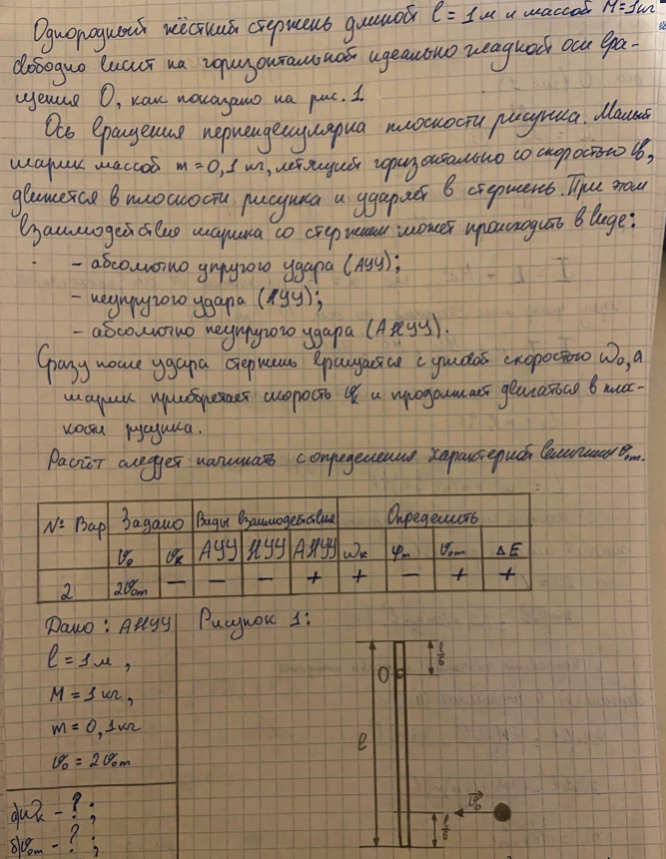 Однородный жёсткий стержень длиной l = 1 м и массой M = 1 кг
свободно висит на горизонтальной идеально гладкой оси вра-
щения О, как показано на рис. 1
Ось вращения перпендекулярна плоскости рисунка. Малый
шарик массой m = 0,1 кг, летящий горизонтально со скоростью v₀,
движется в плоскости рисунка и ударяет в стержень. При этом
взаимодействие шарика со стержнем может происходить в виде:
- абсолютно упругого удара (АУУ);
- неупругого удара (НУУ);
- абсолютно неупругого удара (АНУУ).
Сразу после удара стержень вращается с угловой скоростью ω₀, а
шарик приобретает скорость vₖ и продолжает двигаться в плос-
кости русунка.
Расчёт следует начинать с определения характерной величины v₀ₘ.
№ Вар Задано Виды взаимодействия Определить
v₀ vₖ АУУ НУУ АНУУ ωₖ φₘ v₀ₘ ΔE
2 2v₀ₘ — — — + + — + +
Дано: АНУУ Рисунок 1:
l = 1 м,
M = 1 кг,
m = 0,1 кг
v₀ = 2v₀ₘ
а) ωₖ - ?;
б) v₀ₘ - ?;
O
l
v₀